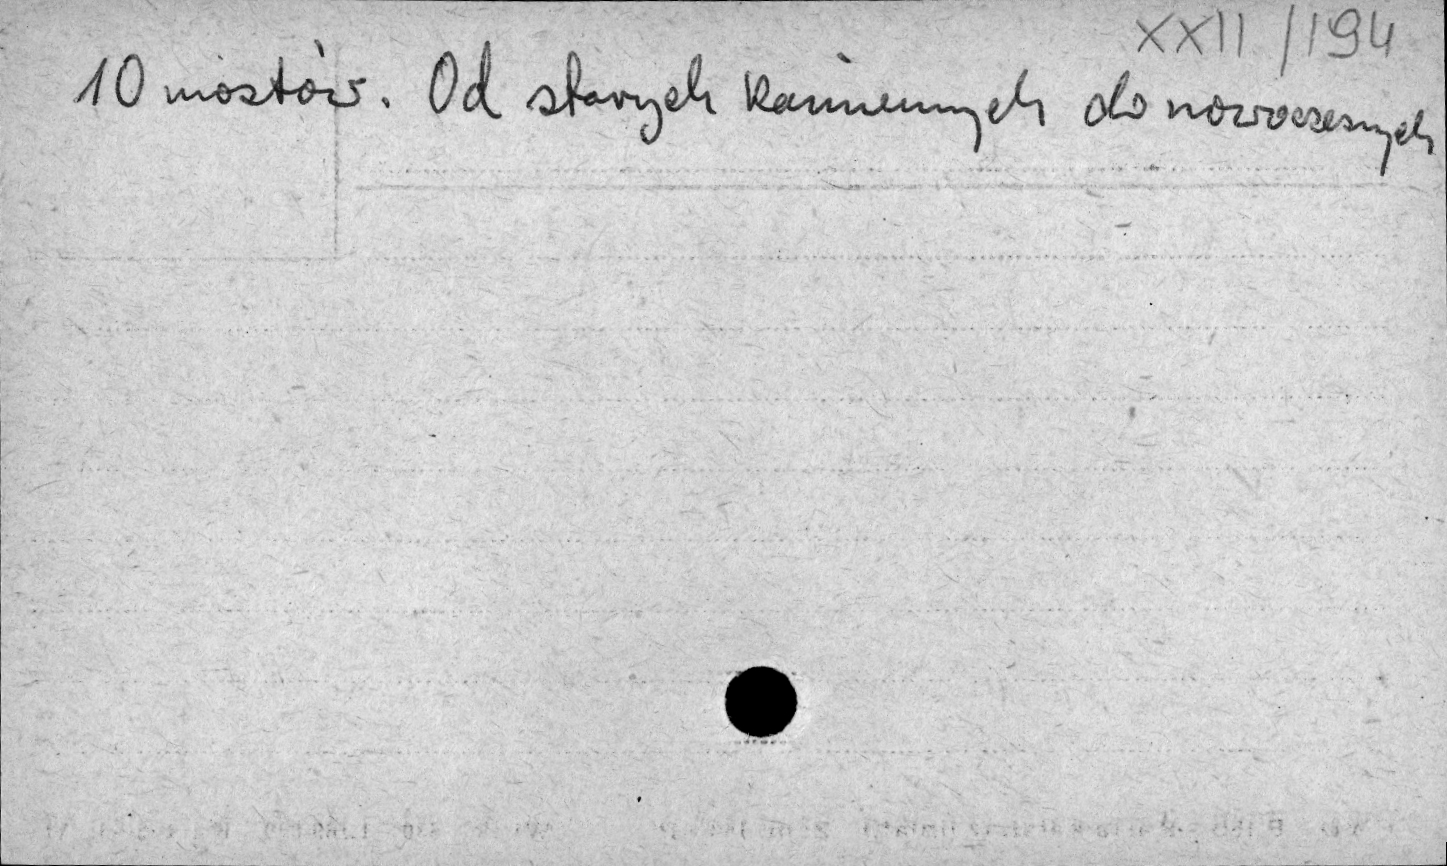 XXII/194
10 mostów. Od starych kamiennych do nowoczesnych